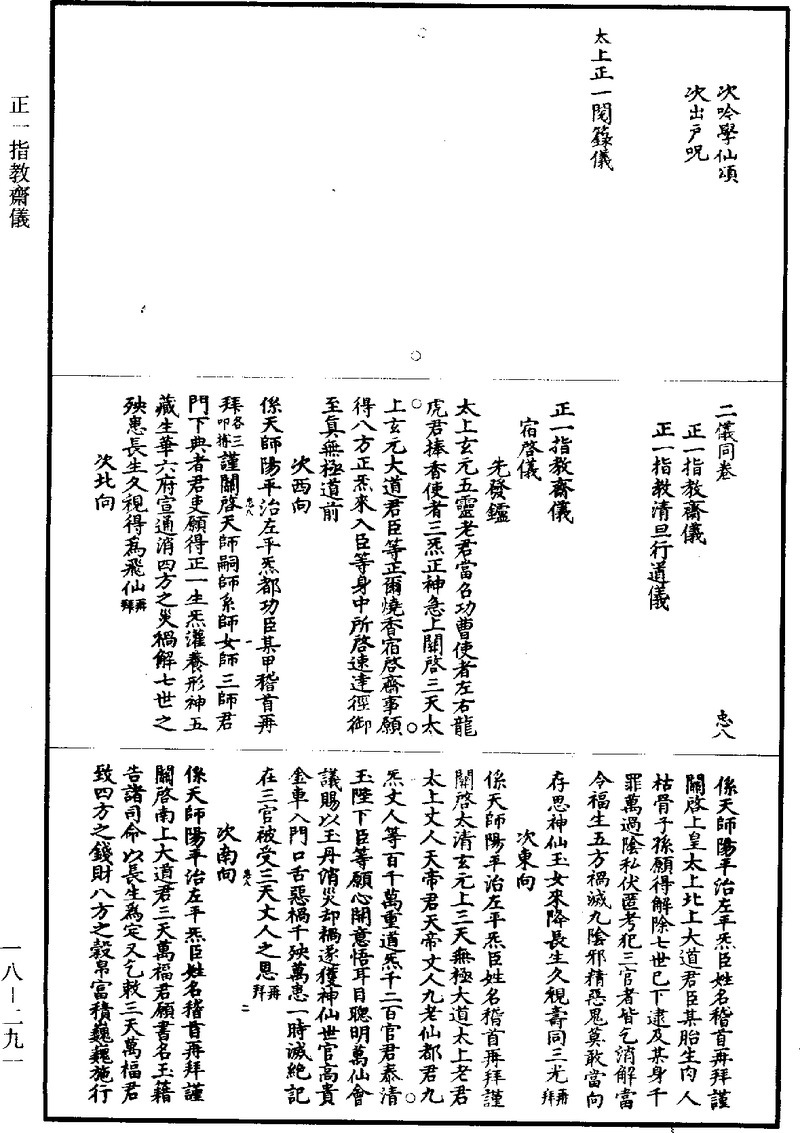 正一指教齋儀
一八—二九一
次吟學仙頌
次出戶呪
太上正一閱籙儀
二儀同卷
忠八
正一指教齋儀
正一指教清旦行道儀
正一指教齋儀
宿啓儀
先發鑪
太上玄元五靈老君當召功曹使者左右龍
虎君捧香使者三炁正神急上關啓三天太
上玄元大道君臣等正爾燒香宿啓齋事願
得八方正炁來入臣等身中所啓速達徑御
至真無極道前
次西向
係天師陽平治左平炁都功臣某甲稽首再
忠八
一
拜各三叩搏謹關啓天師嗣師系師女師三師君
門下典者君吏願得正一生炁灌養形神五
藏生華六府宣通消四方之災禍解七世之
殃患長生久視得爲飛仙再拜
次北向
係天師陽平治左平炁臣姓名稽首再拜謹
關啓上皇太上北上大道君臣某胎生肉人
枯骨子孫願得解除七世已下逮及某身千
罪萬過陰私伏匿考犯三官者皆乞消解當
令福生五方禍滅九陰邪精惡鬼莫敢當向
存思神仙玉女來降長生久視壽同三光再拜
次東向
係天師陽平治左平炁臣姓名稽首再拜謹
關啓太清玄元上三天無極大道太上老君
太上丈人天帝君天帝丈人九老仙都君九
炁丈人等百千萬重道炁千二百官君泰清
玉陛下臣等願心開意悟耳目聰明萬仙會
議賜以玉丹消災却禍遂獲神仙世官高貴
金車入門口舌惡禍千殃萬患一時滅絕記
在三官被受三天丈人之恩再拜
忠八
二
次南向
係天師陽平治左平炁臣姓名稽首再拜謹
關啓南上大道君三天萬福君願書名玉籍
告諸司命以長生爲定又乞敕三天萬福君
致四方之錢財八方之穀帛富積巍巍施行